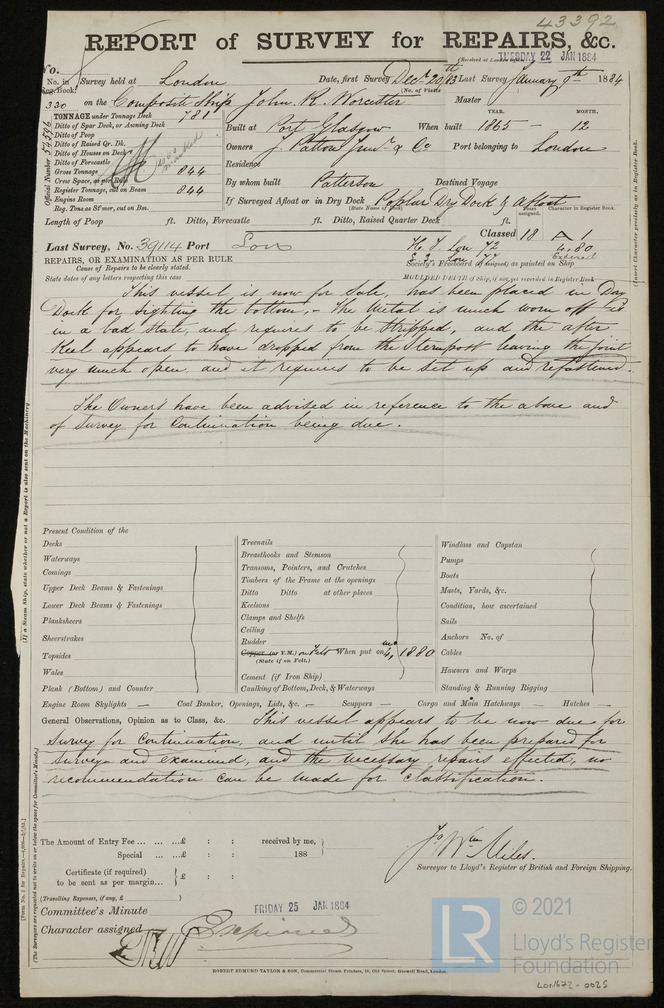 43392
REPORT of SURVEY for REPAIRS, &c.
(Received at London Office) TUESDAY 22 JAN 1884
No.
No. in Survey held at London Date, first Survey Decr 20th /83 Last Survey January 9th 1884
Reg. Book. (No. of Visits )
330 on the Composite Ship John R. Worcester Master
TONNAGE under Tonnage Deck 781 YEAR. MONTH.
Ditto of Spar Deck, or Awning Deck Built at Port Glasgow When built 1865 - 12
Ditto of Poop
Ditto of Raised Qr. Dk. Owners J. Patton Junr & Co Port belonging to London
Ditto of Houses on Deck
Ditto of Forecastle Residence
Gross Tonnage 844
Crew Space, as per Rule By whom built Patterson Destined Voyage
Register Tonnage, cut on Beam 844
Engine Room If Surveyed Afloat or in Dry Dock Poplar Dry Dock & afloat
Reg. Tons as St'mer, cut on Bm. (State Name of Dock) Years assigned. Character in Register Book.
Official Number 54596
Length of Poop ft. Ditto, Forecastle ft. Ditto, Raised Quarter Deck ft.
Classed 18 A 1
Last Survey, No. 39114 Port Lon H. T. Lon 72 4.80
Lon 77 Expired
REPAIRS, OR EXAMINATION AS PER RULE Society's Freeboard (if assigned) as painted on Ship
Cause of Repairs to be clearly stated.
State dates of any letters respecting this case MOULDED DEPTH of Ship, if not yet recorded in Register Book
This vessel is now for Sale, has been placed in Dry
Dock for sighting the bottom, - The Metal is much worn off &
in a bad State, and requires to be stripped, and the after
Keel appears to have dropped from the Sternpost leaving the joint
very much open and it requires to be set up and refastened.
The Owners have been advised in reference to the above and
of Survey for Continuation being due.
(Insert Character precisely as in Register Book.
(If a Steam Ship, state whether or not a Report is also sent on the Machinery
Present Condition of the
Decks
Waterways
Comings
Upper Deck Beams & Fastenings
Lower Deck Beams & Fastenings
Planksheers
Sheerstrakes
Topsides
Wales
Plank (Bottom) and Counter
Treenails
Breasthooks and Stemson
Transoms, Pointers, and Crutches
Timbers of the Frame at the openings
Ditto Ditto at other places
Keelsons
Clamps and Shelfs
Ceiling
Rudder
Copper (or Y.M.) on Felt When put on mo 4, 1880
(State if on Felt.)
Cement (if Iron Ship)
Caulking of Bottom, Deck, & Waterways
Windlass and Capstan
Pumps
Boats
Masts, Yards, &c.
Condition, how ascertained
Sails
Anchors No. of
Cables
Hawsers and Warps
Standing & Running Rigging
Engine Room Skylights — Coal Bunker, Openings, Lids, &c. — Scuppers — Cargo and Main Hatchways — Hatches —
General Observations, Opinion as to Class, &c. This vessel appears to be now due for
Survey for Continuation, and until she has been prepared for
Survey and examined, and the necessary repairs effected, no
recommendation can be made for classification.
The Amount of Entry Fee ... ... ...£ : : received by me,
Special ... ...£ : : 188
Certificate (if required) to be sent as per margin... £ : :
(Travelling Expenses, if any, £ )
Jo Wm Miles.
Surveyor to Lloyd's Register of British and Foreign Shipping.
Committee's Minute FRIDAY 25 JAN 1884
Character assigned Expired
(The Surveyors are requested not to write on or below the space for Committee's Minute.)
ROBERT EDMUND TAYLOR & SON, Commercial Steam Printers, 19, Old Street, Goswell Road, London.
LR
© 2021
Lloyd's Register
Foundation
LON1672-0025